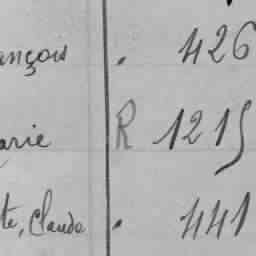 ançois . 426
arie R 1215
te, Claude . 441